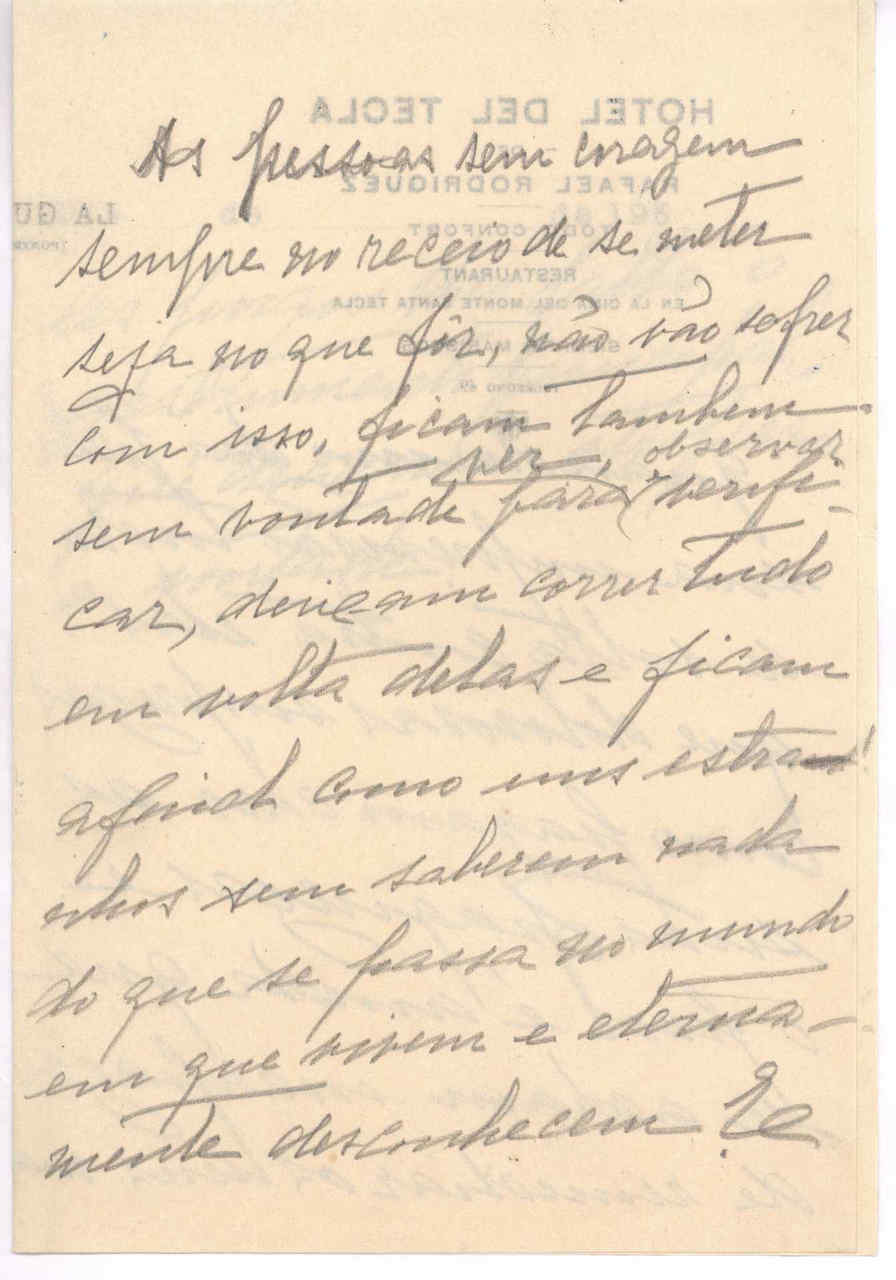 As pessoas sem coragem
sempre no receio de se meter
seja no que fôr, não vão sofrer
com isso, ficam tambem
ver, observar
sem vontade para verifi-
car, deixam correr tudo
em volta delas e ficam
afinal como uns estra-
nhos sem saberem nada
do que se passa no mundo
em que vivem e eterna-
mente desconhecem
HOTEL DEL TECLA
RAFAEL RODRIGUEZ
TODO CONFORT
RESTAURANT
EN LA CIMA DEL MONTE SANTA TECLA
LA GU